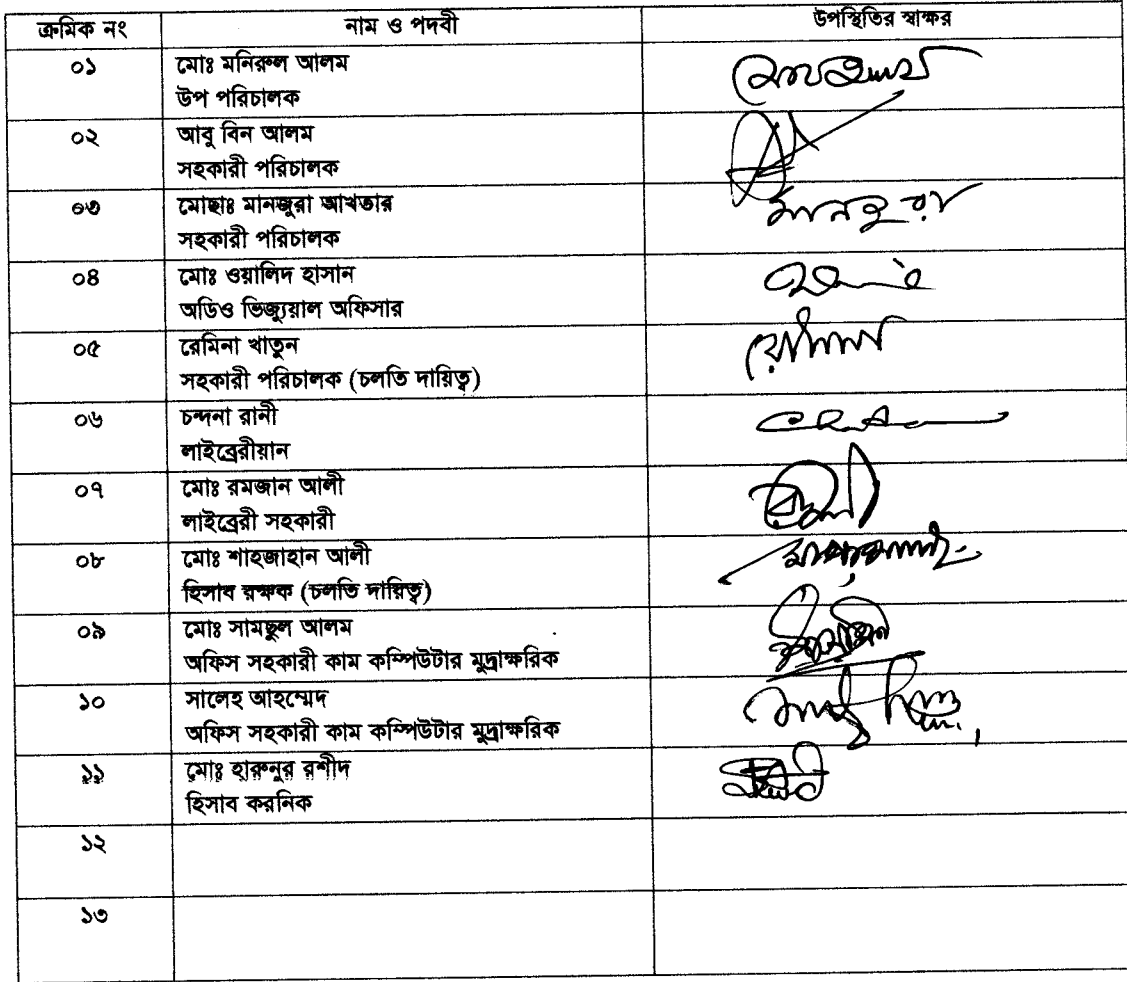 ক্রমিক নং নাম ও পদবী উপস্থিতির স্বাক্ষর
০১ মোঃ মনিরুল আলম
উপ পরিচালক
০২ আবু বিন আলম
সহকারী পরিচালক
০৩ মোছাঃ মানজুরা আখতার
সহকারী পরিচালক
০৪ মোঃ ওয়ালিদ হাসান
অডিও ভিজ্যুয়াল অফিসার
০৫ রেমিনা খাতুন
সহকারী পরিচালক (চলতি দায়িত্ব)
০৬ চন্দনা রানী
লাইব্রেরীয়ান
০৭ মোঃ রমজান আলী
লাইব্রেরী সহকারী
০৮ মোঃ শাহজাহান আলী
হিসাব রক্ষক (চলতি দায়িত্ব)
০৯ মোঃ সামছুল আলম
অফিস সহকারী কাম কম্পিউটার মুদ্রাক্ষরিক
১০ সালেহ আহম্মেদ
অফিস সহকারী কাম কম্পিউটার মুদ্রাক্ষরিক
১১ মোঃ হারুনুর রশীদ
হিসাব করনিক
১২
১৩